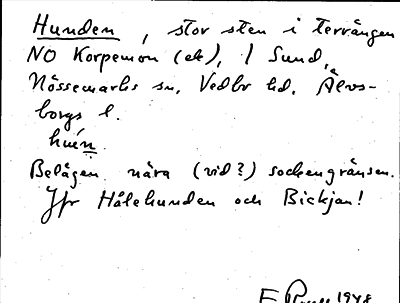 Hunden, stor sten i terrängen
NO Korpemon (ek), 1 Sund,
Nössemarks sn, Vedbo hd, Älvs-
borgs l.
huǹn
Belägen nära (vid?) sockengränsen.
Jfr Hålehunden och Bickjan!
1948